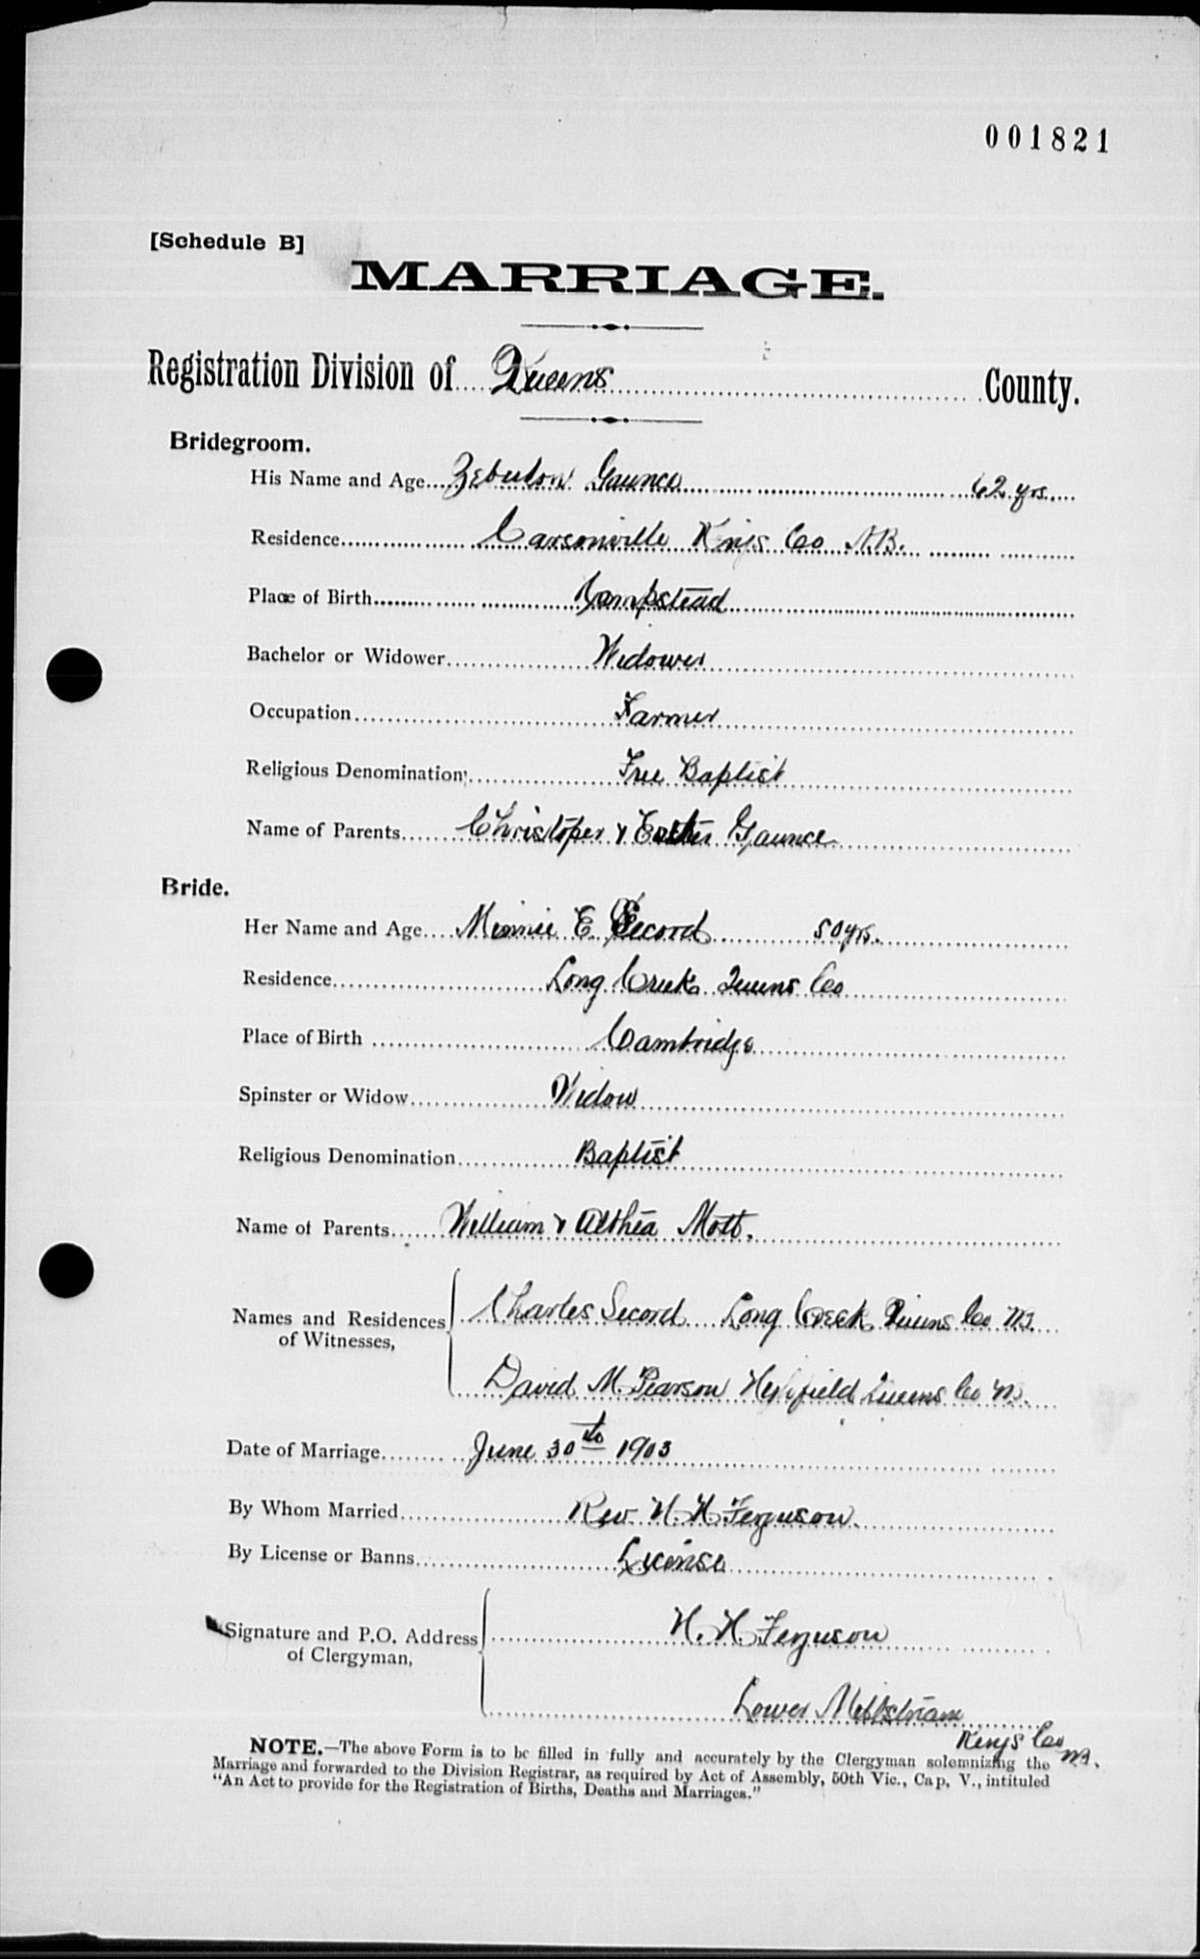 001821
[Schedule B]
MARRIAGE.
Registration Division of Queens County.
Bridegroom.
His Name and Age Zebulon Gaunce 62 yrs.
Residence Carsonville Kings Co N.B.
Place of Birth Hampstead
Bachelor or Widower Widower
Occupation Farmer
Religious Denomination Free Baptist
Name of Parents Christoper & Esther Gaunce
Bride.
Her Name and Age Minnie E. Secord 50 yrs.
Residence Long Creek Queens Co
Place of Birth Cambridge
Spinster or Widow Widow
Religious Denomination Baptist
Name of Parents William & Althea Mott.
Names and Residences of Witnesses, Charles Secord Long Creek Queens Co NB.
David M. Pearson Queens Co NB.
Date of Marriage June 30th 1903
By Whom Married Rev. H. H. Ferguson.
By License or Banns License
Signature and P.O. Address of Clergyman, H. H. Ferguson
Lower Millstream
Kings Co NB.
NOTE.—The above Form is to be filled in fully and accurately by the Clergyman solemnizing the
Marriage and forwarded to the Division Registrar, as required by Act of Assembly, 50th Vic., Cap, V., intituled
"An Act to provide for the Registration of Births, Deaths and Marriages."